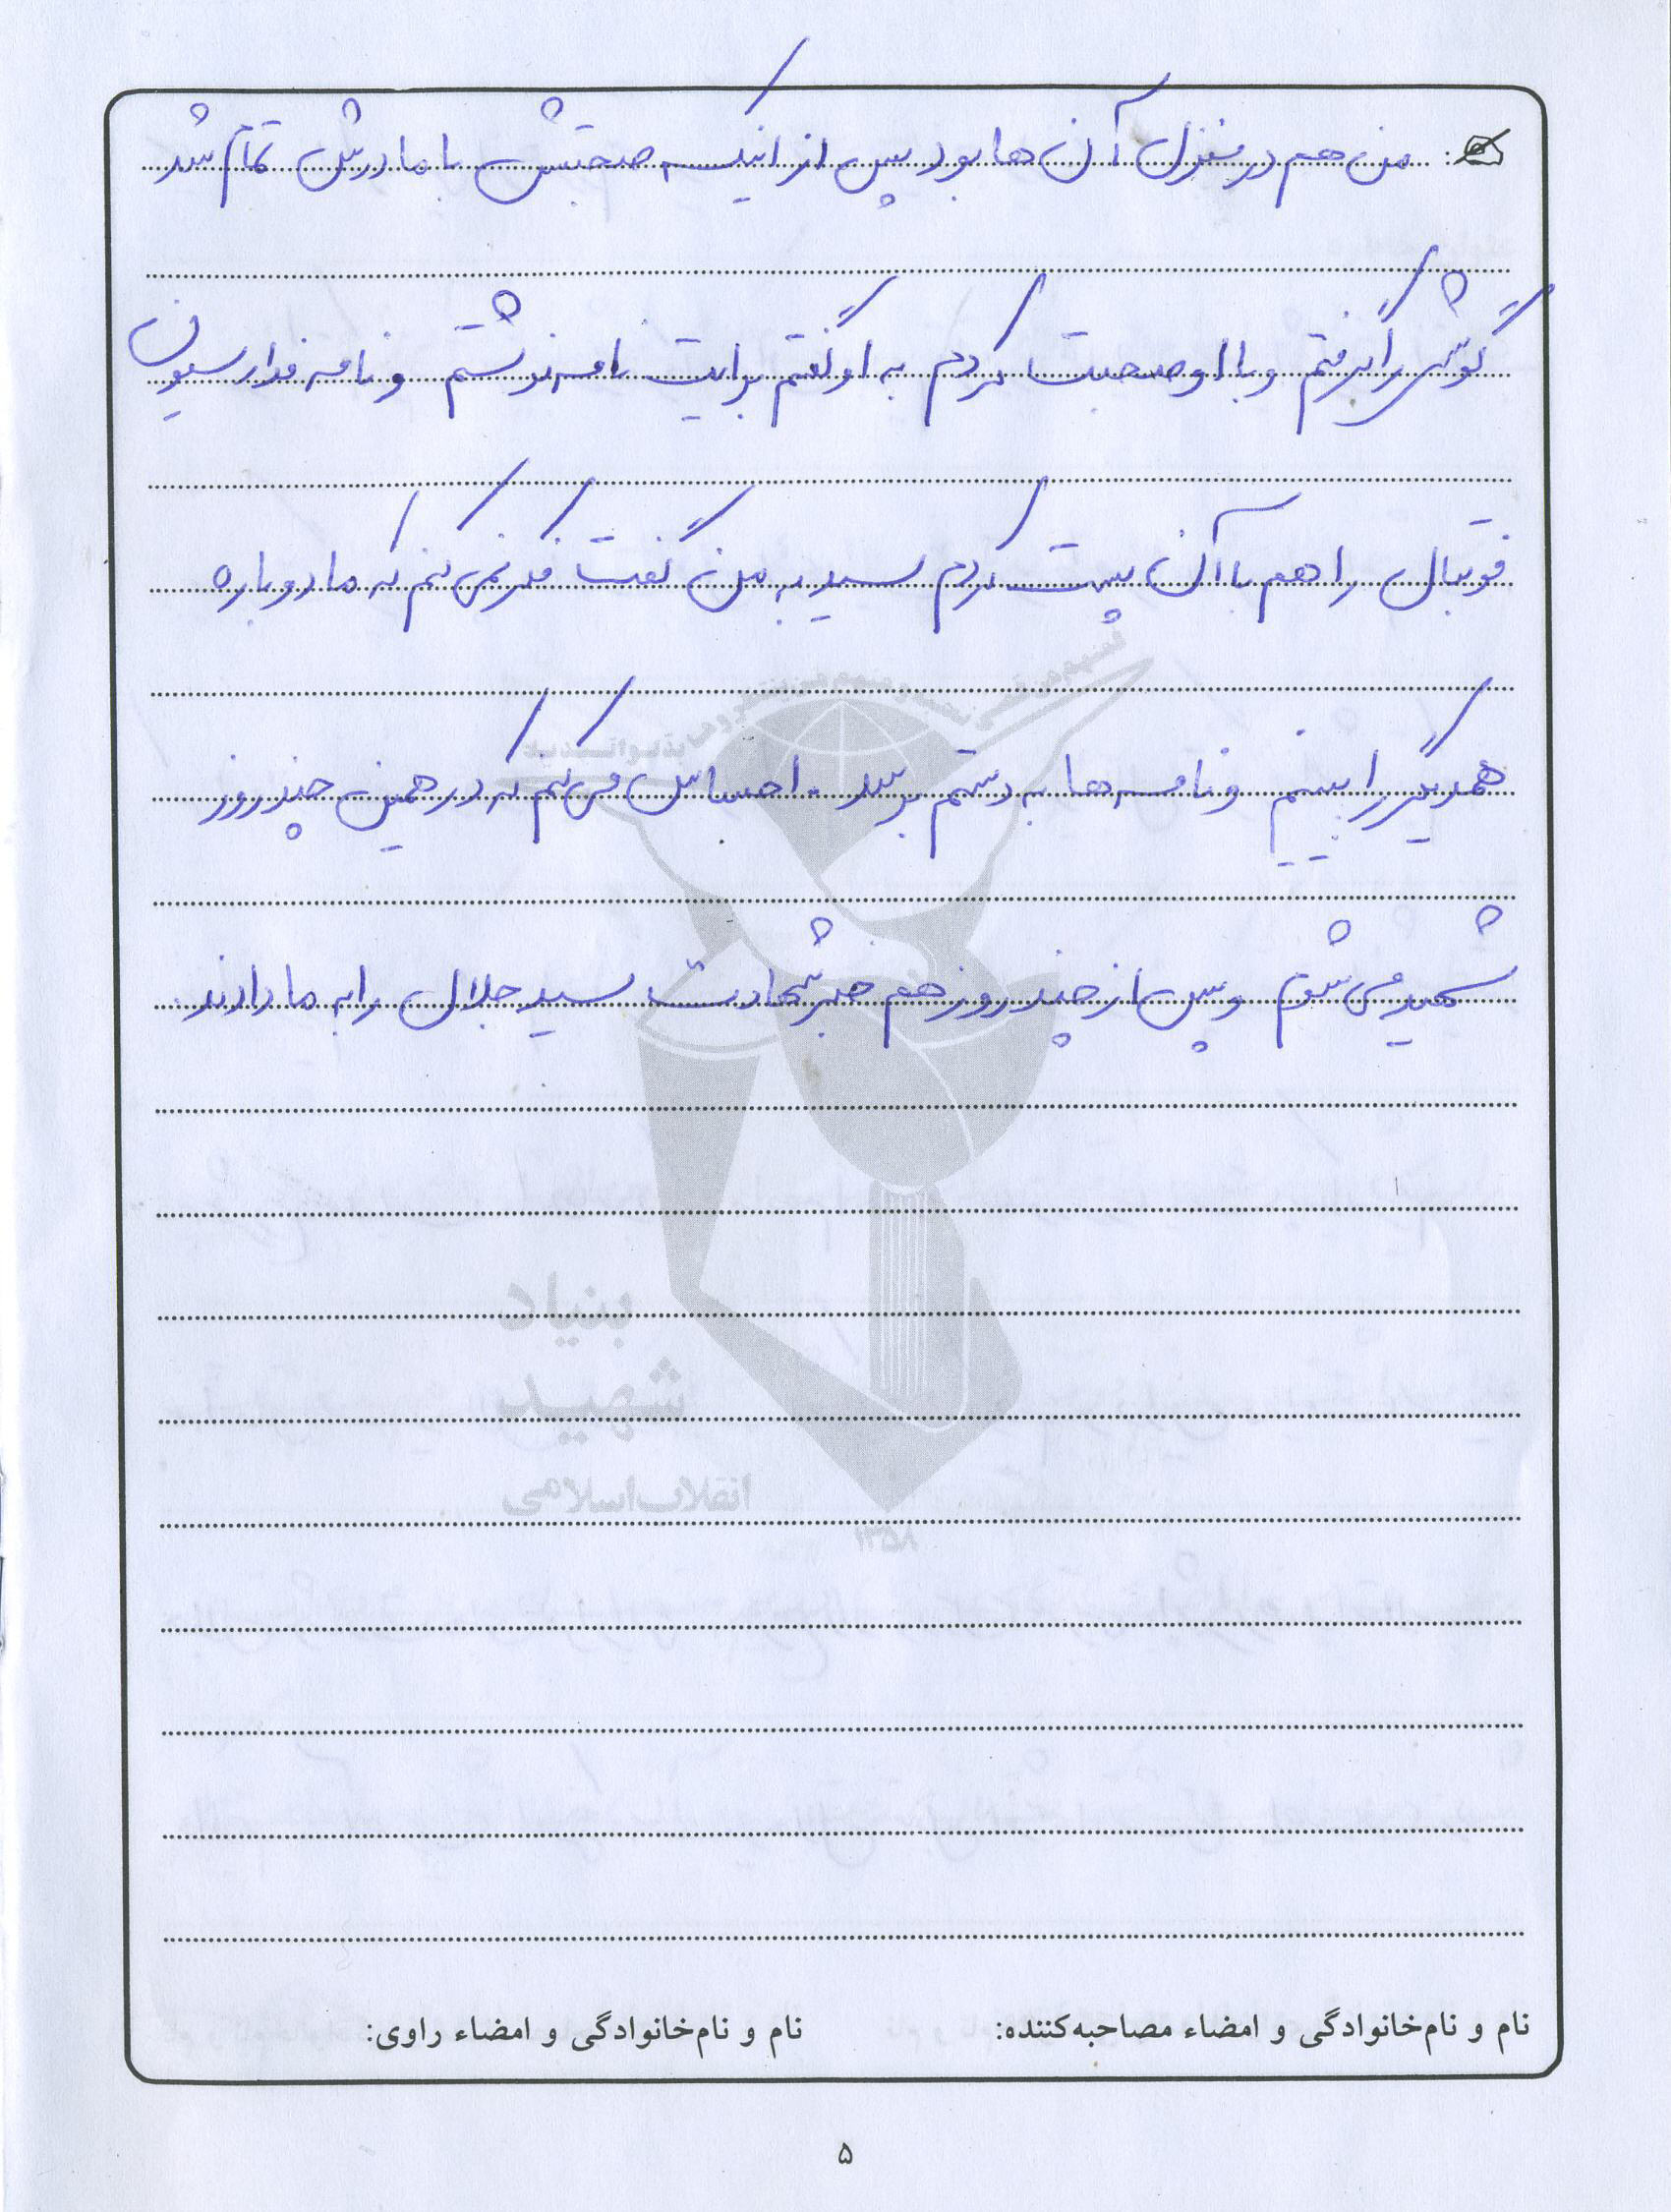 من هم در منزل آن ها بود پس از اینکه صحبتش با مادرش تمام شد
گوشی را گرفتم و با او صحبت کردم به او گفتم برایت نامه نوشتم و نامه فدارسیون
فوتبال را هم با آن پست کردم سید به من گفت فکر نمی کنم که ما دوباره
همدیگر را ببینیم و نامه ها به دستم برسد. احساس می کنم که در همین چند روز
شهید می شوم و پس از چند روز هم خبر شهادت سید جلال را به ما دادند.
بنیاد
شهید
انقلاب اسلامی
۱۳۵۸
نام و نام‌خانوادگی و امضاء مصاحبه‌کننده:
نام و نام‌خانوادگی و امضاء راوی:
۵